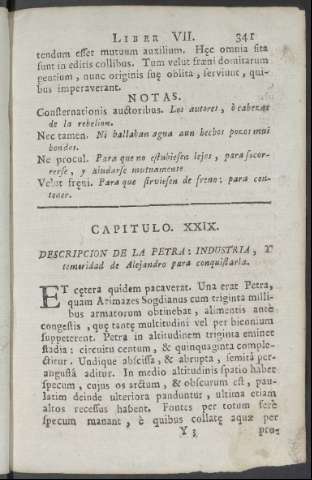 LIBER VII. 341
tendum esset mutuum auxilium. Hęc omnia sita
sunt in editis collibus. Tum velut fræni domitarum
gentium, nunc originis suę oblita, serviunt, qui-
bus imperaverant.
NOTAS.
Consternationis auctoribus. Los autores, ò cabezas
de la rebelion.
Nec tamen. Ni hallaban agua aun hechos pozos mui
hondos.
Ne procul. Para que no estubiesen lejos, para socor-
rerse, y aiudarse mutuamente.
Velut fręni. Para que sirviesen de freno: para con-
tener.
CAPITULO. XXIX.
DESCRIPCION DE LA PETRA: INDUSTRIA, Y
temeridad de Alejandro para conquistarla.
ET cętera quidem pacaverat. Una erat Petra,
quam Arimazes Sogdianus cum triginta milli-
bus armatorum obtinebat, alimentis ante
congestis, quę tantę multitudini vel per biennium
suppeterent. Petra in altitudinem triginta eminet
stadia: circuitu centum, & quinquaginta comple-
ctitur. Undique abscissa, & abrupta, semitâ per-
angustâ aditur. In medio altitudinis spatio habet
specum, cujus os arctum, & obscurum est, pau-
latim deinde ulteriora panduntur, ultima etiam
altos recessus habent. Fontes per totum ferè
specum manant, è quibus collatę aquæ per
Y 3 pro-